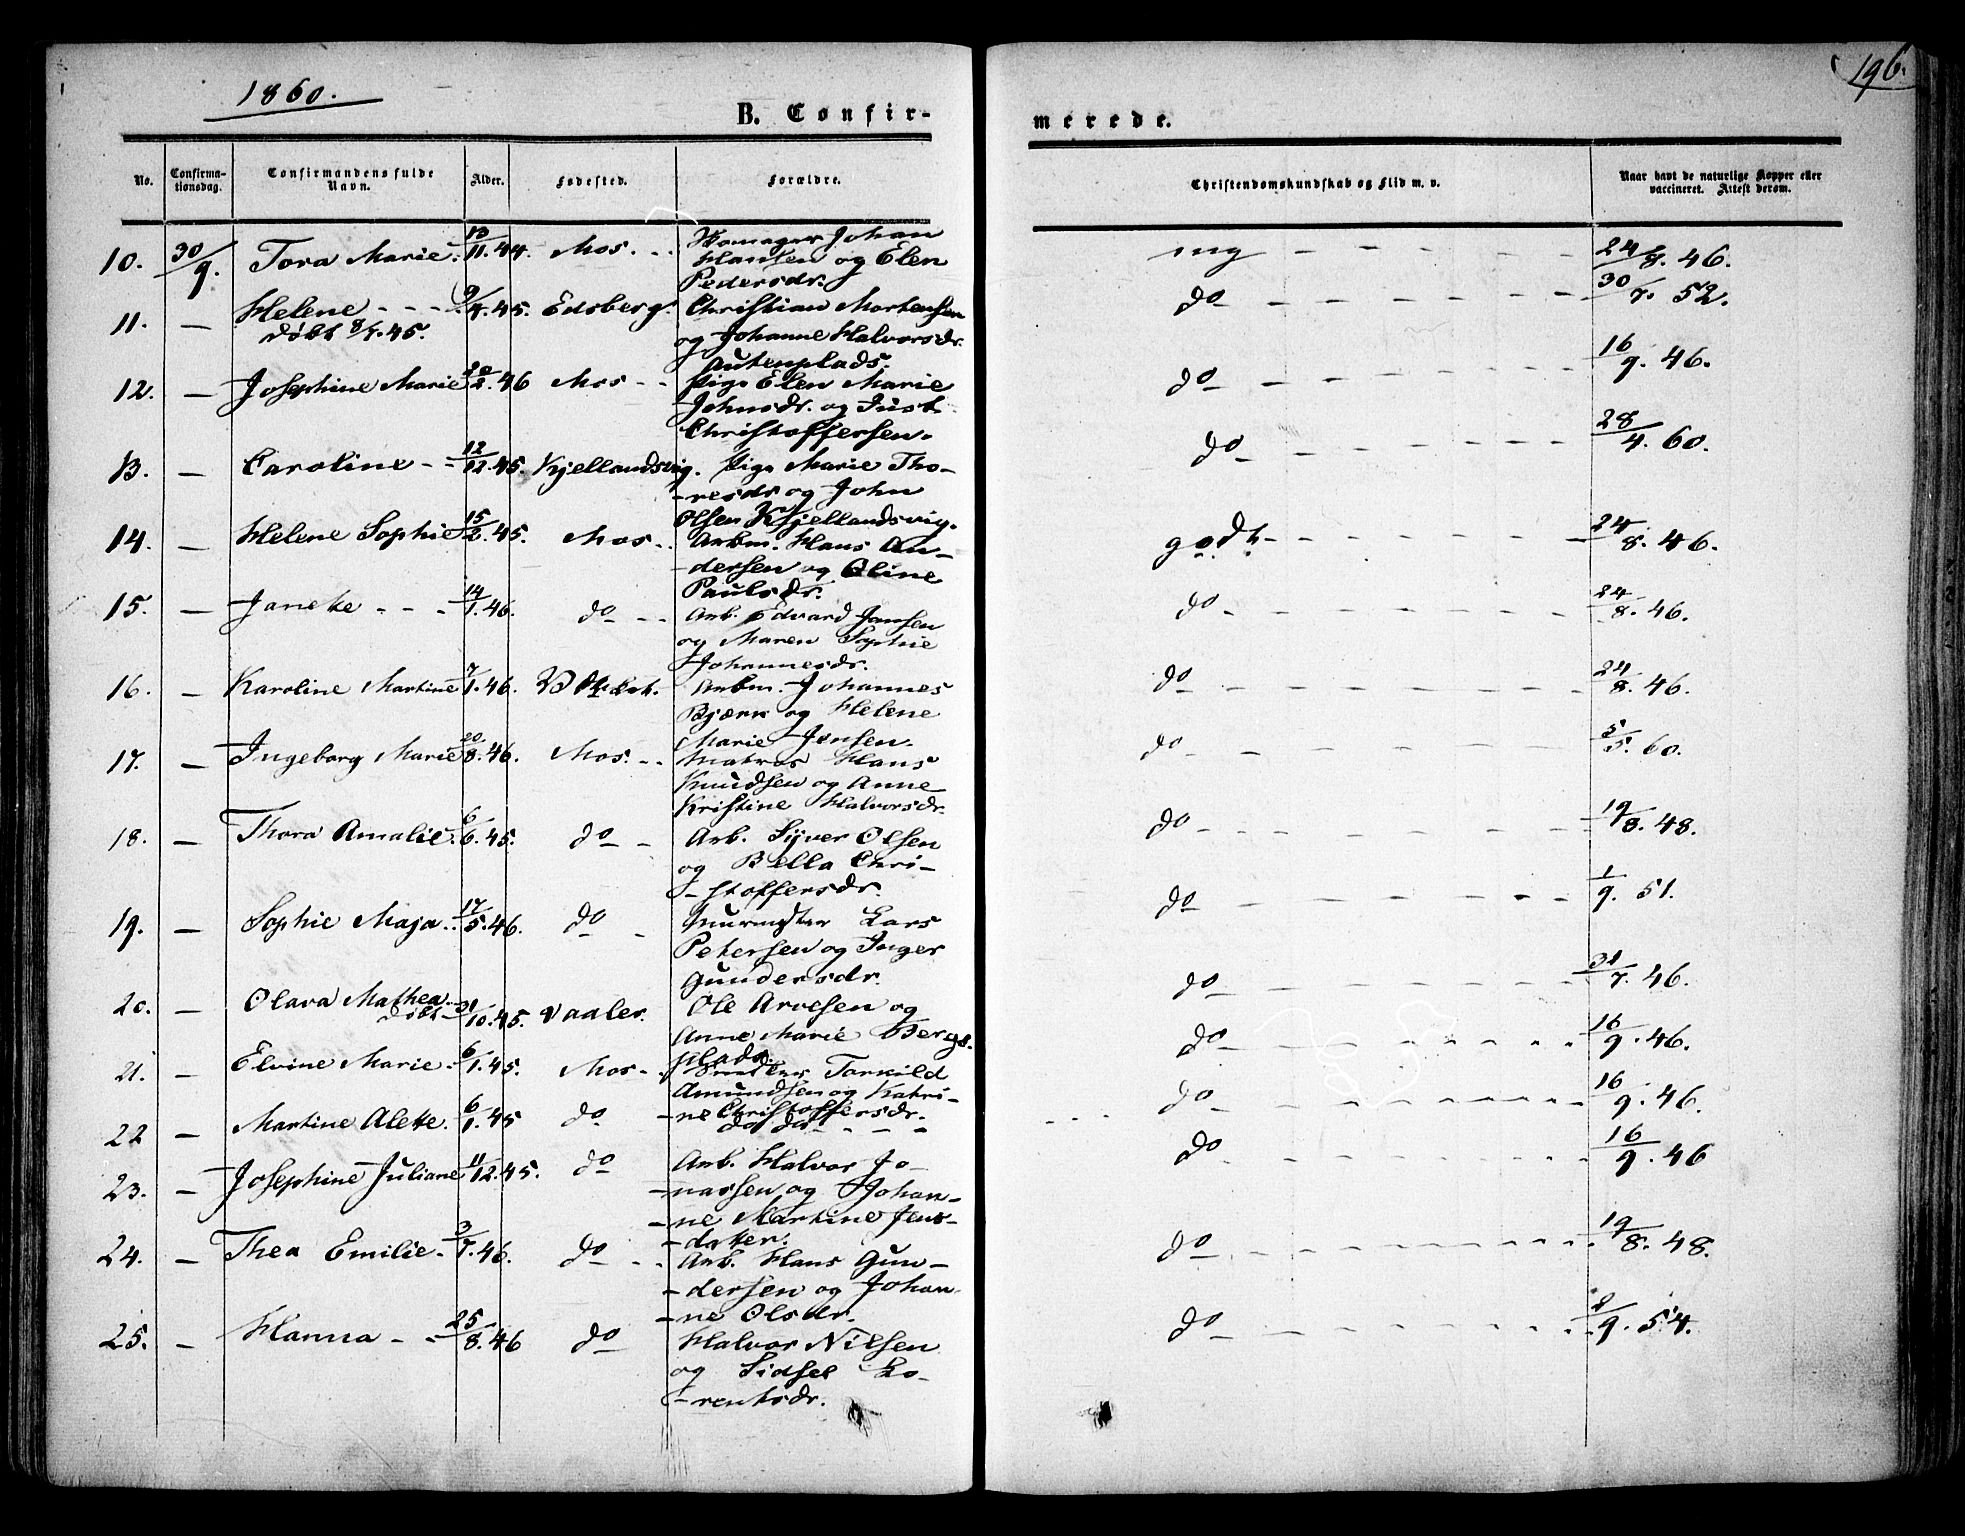 1860.
196.
B. Confir-
merede.
No.
Confirma-
tionsdag.
Confirmandens fulde
Navn.
Alder.
Fødested.
Forældre.
Christendomskundskab og Flid m. v.
Naar havt de naturlige Kopper eller
vaccineret. Attest derom.
10. 30/9. Tora Marie. 13/11.44. Mos. Skomager Johan
Hansen og Elen
Pedersdr.
mg - - - - 24/8. 46.
11. — Helene - - - 9/4.45. Edsberg. Christian Mortensen
døbt 8/7.45.
og Johanne Halvorsdr.
Autenplads.
do - - - - 30/7. 52.
12. — Josephine Marie 20/2.46 Mos - - Pige Elen Marie
Johnsdr. og Just
Christoffersen.
do - - - - 16/9. 46.
13. — Caroline - - 12/12.45. Kjellandsvig. Pige Marie Tho-
-resdr og John
Olsen Kjellandsvig.
do - - - - 28/4. 60.
14. — Helene Sophie 15/2.45. Mos - - Arbm. Hans An-
-dersen og Oline
Paulsdr.
godt - - - - 24/8. 46.
15. — Janete - - - 14/1.46. do - - Arb. Edvard Jansen
og Maren Sophie
Johannesdr.
do - - - - 24/8. 46.
16. — Karoline Martine 7/1.46. Arbm. Johannes
Bjærk og Helene
Marie Jensen.
do - - - - 24/8. 46.
17. — Ingeborg Marie 20/8.46. Mos. - - Matros Hans
Knudsen og Anne
Kristine Halvorsdr.
do - - - - 5/5. 60.
18. — Thora Amalie. 6/6.45. do - Arb. Syver Olsen
og Bella Chri-
-stoffersdr.
do - - - - 19/8. 48.
19. — Sophie Maja.. 17/5.46. do - Murmester Lars
Petersen og Inger
Gundersdr.
do - - - - 1/9. 51.
20. — Olava Mathea..
døbt - 31/10.45. Vaaler. Ole Arvesen og
Anne Marie Bergs-
plads.
do - - - - 31/7. 46.
21. — Elvine Marie. 6/1.45. Mos - - Torkild
Amundsen og Katri-
-ne Christoffersdr.
do - - - - 16/9. 46.
22 — Martine Alette. 6/1.45 do. do do - - - -
do - - - - 16/9. 46.
23. — Josephine Juliane 11/12.45. do Arb. Halvor Jo-
-nassen og Johan-
-ne Martine Jens-
-datter.
do - - - - 16/9. 46
24. — Thea Emilie. 3/7.46. do - - Arb. Hans Gun-
-dersen og Johan-
-ne Olsdr.
do - - - - 19/8. 48.
25. — Hanna - - 25/8.46 do Halvor Nilsen
og Sidsel Lo-
-rentsdr.
do - - - - 2/9. 54.